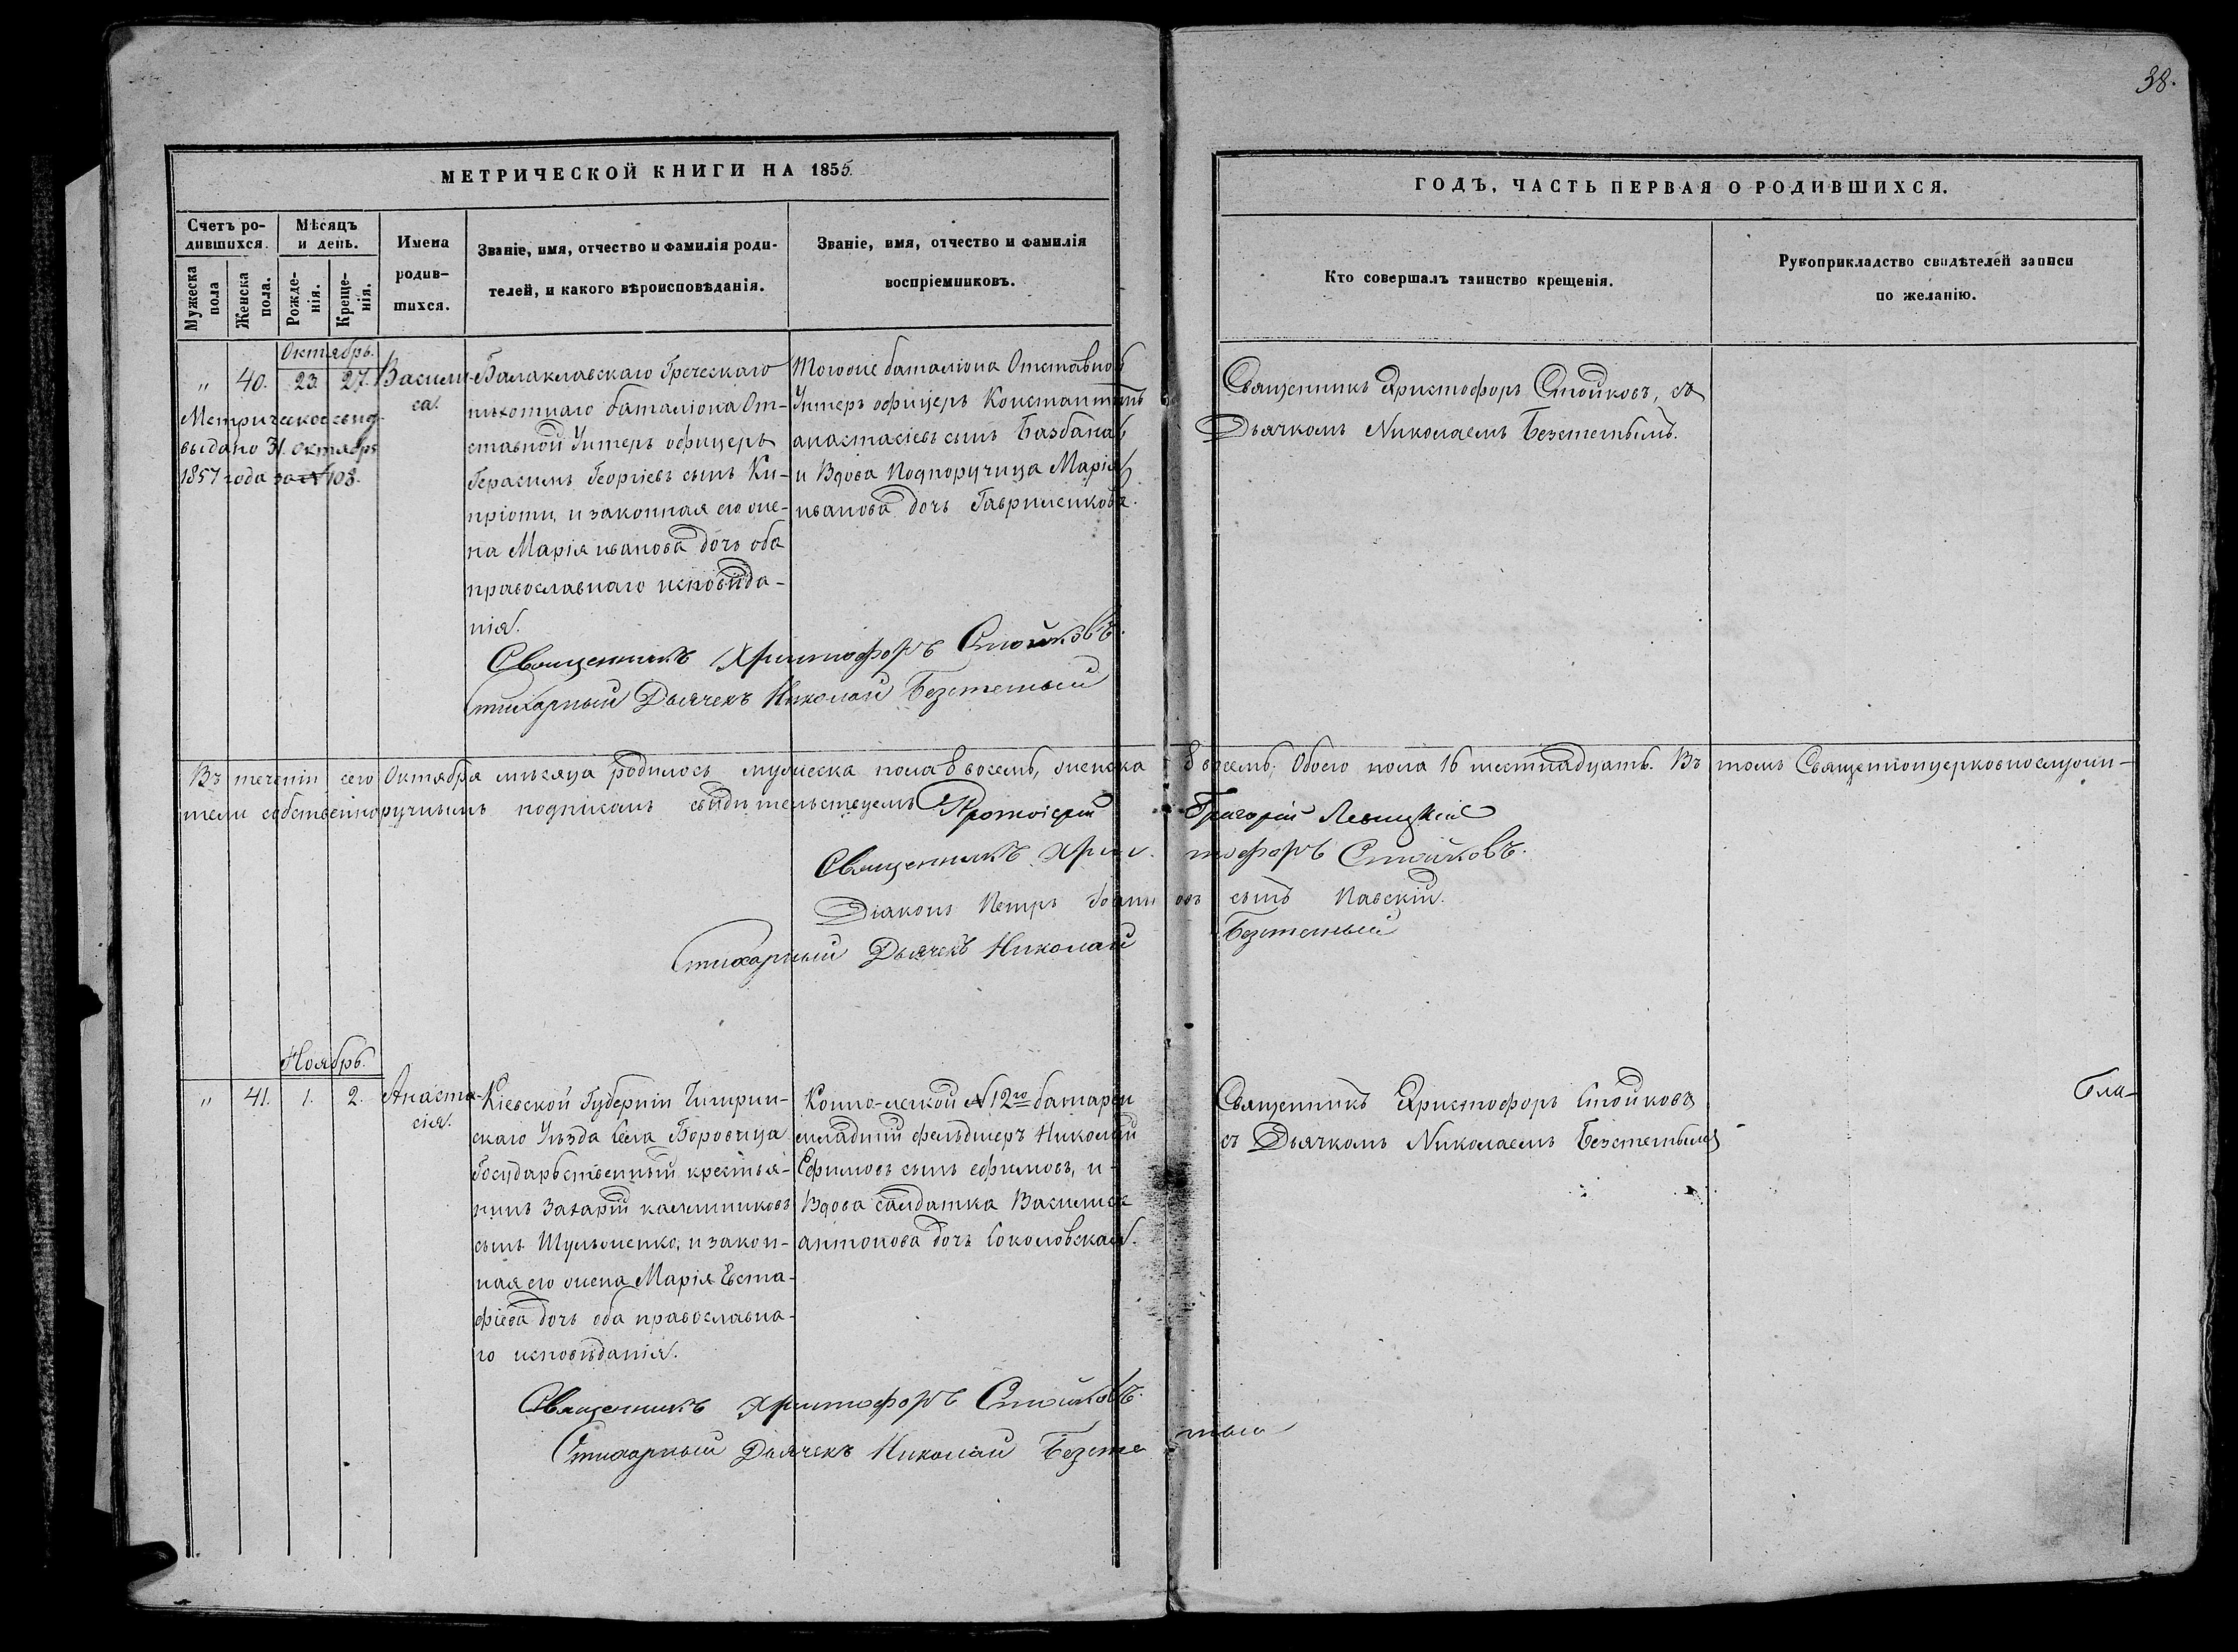 38.
МЕТРИЧЕСКОЙ КНИГИ НА 1855.
ГОДЪ, ЧАСТЬ ПЕРВАЯ О РОДИВШИХСЯ.
Счетъ ро-
дившихся.
Мужеска
пола
Женска
пола.
Мѣсяцъ
и день.
Рожде-
нія.
Креще-
нія.
Имена
родив-
шихся.
Званіе, имя, отчество и фамилія роди-
телей, и какого вѣроисповѣданія.
Званіе, имя, отчество и фамилія
воспріемниковъ.
Кто совершалъ таинство крещенія.
Рукоприкладство свидѣтелей записи
по желанію.
Октябрь.
" 40. 23. 27.
Метрическое свид.
выдано 31. Октября
1857 года за № 108.
Васили-
са.
Балаклавскаго Греческаго
пѣхотнаго баталіона От-
ставной Унтеръ офицеръ
Герасимъ Георгіевъ сынъ Ки-
пріоти, и законная его же-
на Марія иванова дочь оба
православнаго исповѣда-
нія.
Тогоже баталіона Отставной
Унтеръ офицеръ Константинъ
анастасіевъ сынъ Базбана
и Вдова Подпоручица Марія
иванова дочь Гавриленкова.
Священникъ Христофоръ Стойковъ, съ
Дьячкомъ Николаемъ Безстетнымъ.
Священникъ Христофоръ Стойковъ.
Стихарный Дьячекъ Николай
Въ теченіи сего Октября мѣсяца родилось мужеска пола 8 восемь, женска 8 восемь; Обоего пола 16 шестнадцать. Въ томъ Священноцерковнослужи-
тели собственноручнымъ подписомъ свидѣтельствуемъ Протоіерей Григорій Левицкій
Священникъ Христофоръ Стойковъ.
Діаконъ Петръ Іоанновъ сынъ Павскій.
Стихарный Дьячекъ Николай
Ноябрь.
" 41. 1. 2.
Анаста-
сія.
Кіевской Губерніи Чигрин-
скаго Уѣзда Села Боровица
Государьственный крестья-
нинъ Захарій калинниковъ
сынъ и закон-
ная его жена Марія Евста-
фіева дочь оба православна-
го исповѣданія.
Конно-легкой № 12го батареи
младшій фельдшеръ Николай
Ефимовъ сынъ ефимовъ, и
Вдова салдатка Василиса
антонова дочь Соколовская.
Священникъ Христофоръ Стойковъ
съ Дьячкомъ Николаемъ
Бла-
Священникъ Христофоръ Стойковъ.
Стихарный Дьячекъ Николай